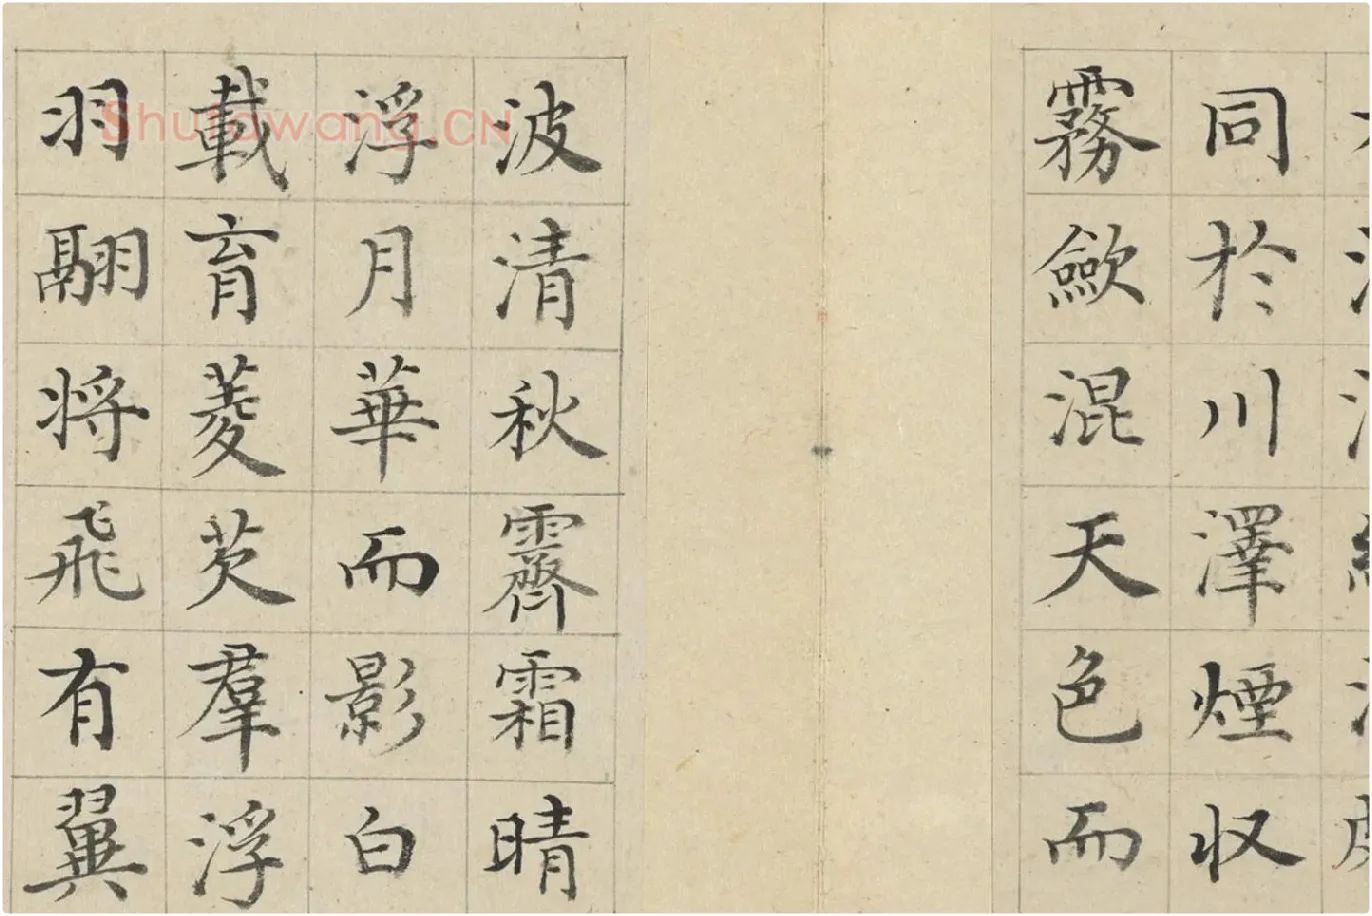 同於川澤煙収
霧歛混天色而
波清秋霽霜晴
浮月華而影白
載育菱芡羣浮
羽翮将飛有翼
Shufawang.CN